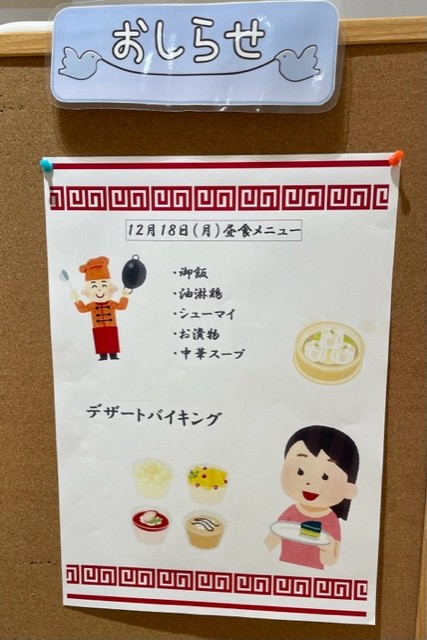 おしらせ
12月18日(月)昼食メニュー
・御飯
・油淋鶏
・シューマイ
・お漬物
・中華スープ
デザートバイキング